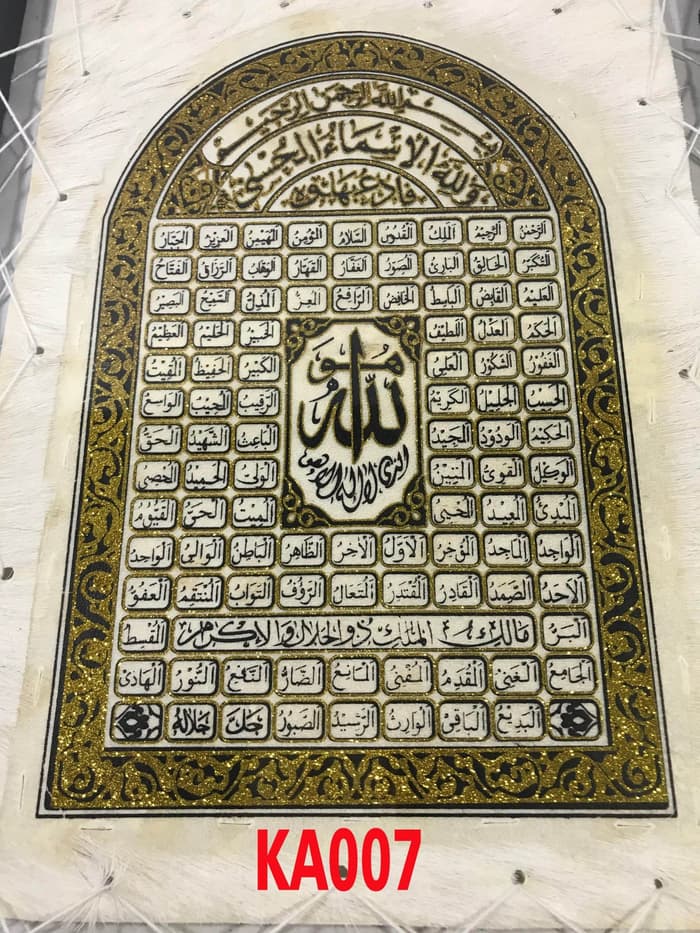 بسم الله الرحمن الرحيم
ولله الأسماء الحسنى
فادعوه بها
الرحمن الرحيم الملك القدوس السلام المؤمن المهيمن العزيز الجبار
المتكبر الخالق البارئ المصور الغفار القهار الوهاب الرزاق الفتاح
العليم القابض الباسط الخافض الرافع المعز المذل السميع البصير
الحكم العدل اللطيف الخبير الحليم العظيم
الغفور الشكور العلي الكبير الحفيظ المقيت
الحسيب الجليل الكريم الرقيب المجيب الواسع
الحكيم الودود المجيد الباعث الشهيد الحق
الوكيل القوي المتين الولي الحميد المحصي
المبدئ المعيد المحيي المميت الحي القيوم
هو
الله
الذي لا إله إلا هو
الواجد الماجد المؤخر الأول الآخر الظاهر الباطن الوالي الواحد
الأحد الصمد القادر المقتدر المتعال الرؤوف التواب المنتقم العفو
البر مالك الملك ذو الجلال والإكرام المقسط
الجامع الغني المقدم المغني المانع الضار النافع النور الهادي
البديع الباقي الوارث الرشيد الصبور جل جلاله
KA007